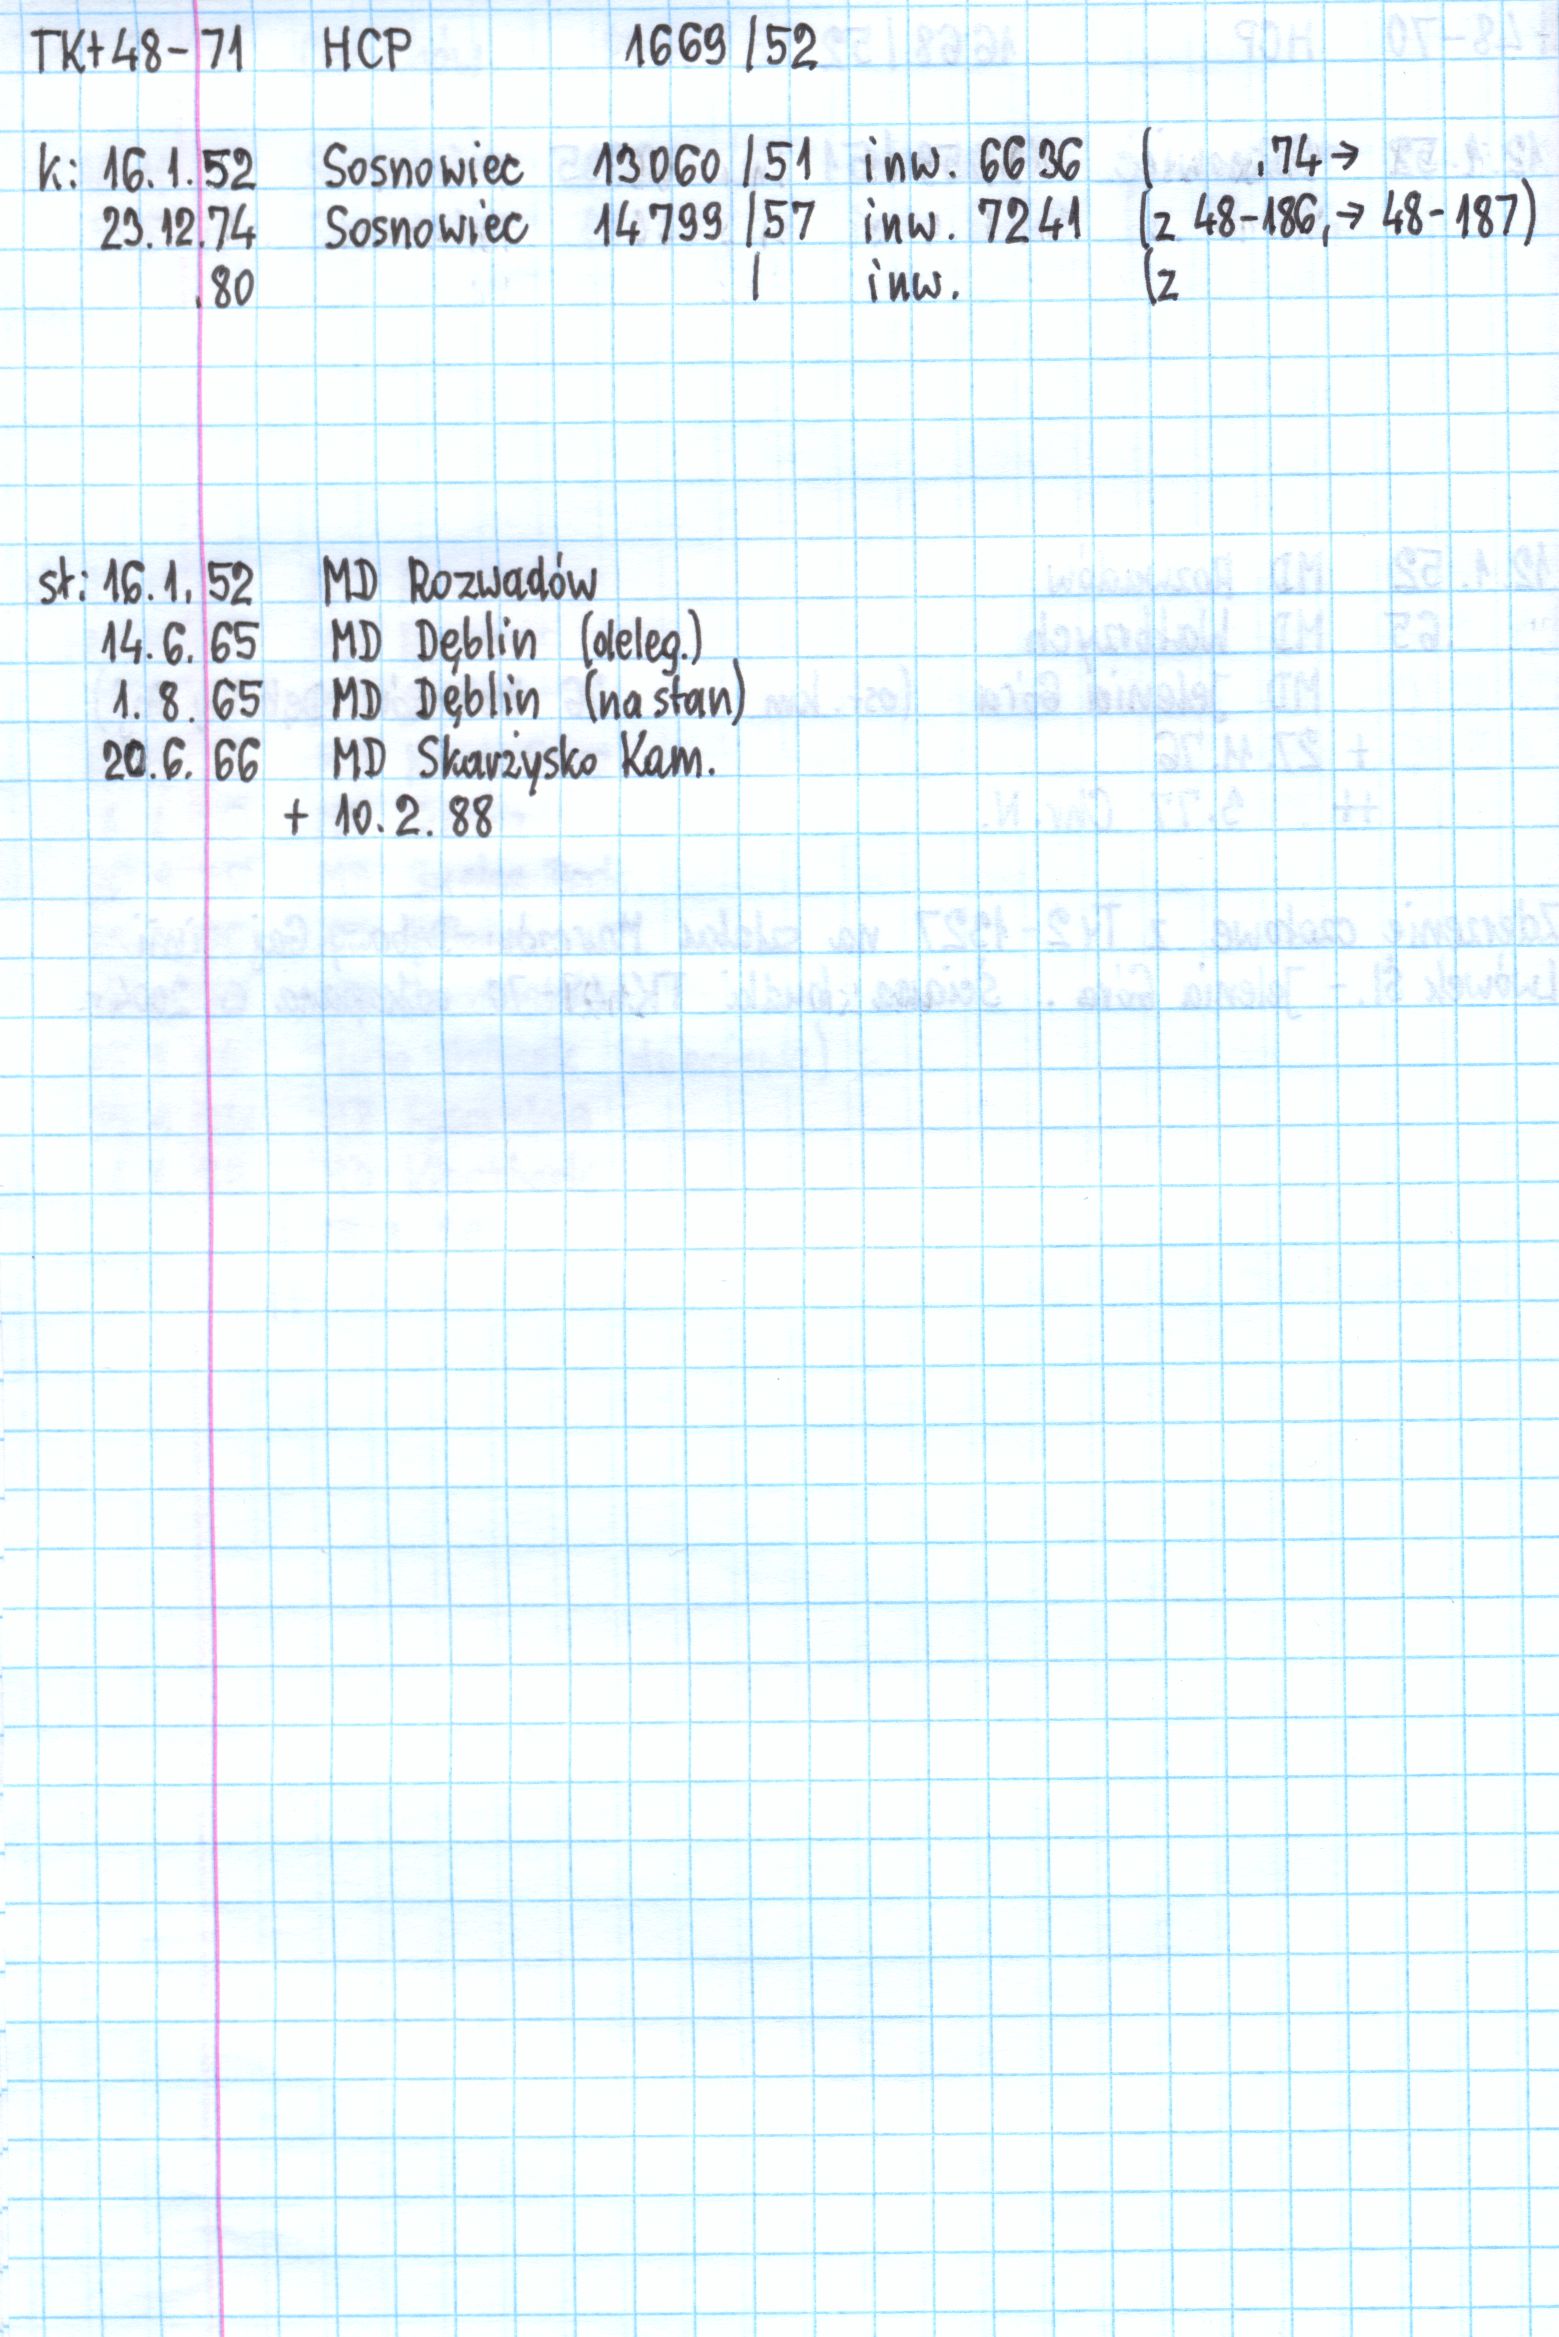 TKt48-71 HCP 1669/52
k: 16.1.52 Sosnowiec 13060/51 inw. 6636 ( .74→
23.12.74 Sosnowiec 14799/57 inw. 7241 (z 48-186,→ 48-187)
.80 / inw. (z
st: 16.1.52 MD Rozwadów
14.6.65 MD Dęblin (deleg.)
1.8.65 MD Dęblin (na stan)
20.6.66 MD Skarżysko Kam.
+ 10.2.88